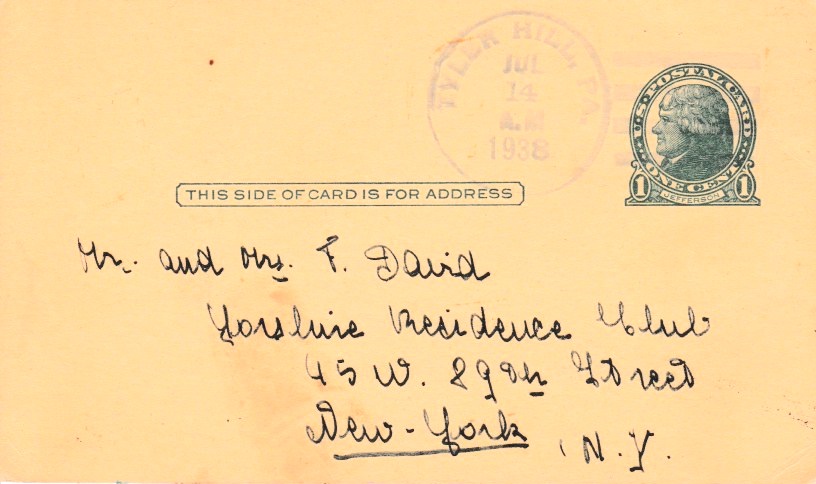 TYLER HILL, PA.
JUL
14
A.M
1938
U.S. POSTAL CARD
ONE CENT
1 JEFFERSON 1
THIS SIDE OF CARD IS FOR ADDRESS
Mr. and Mrs. F. David
Residence Club
45 W. 89th Street
New-York, N.Y.